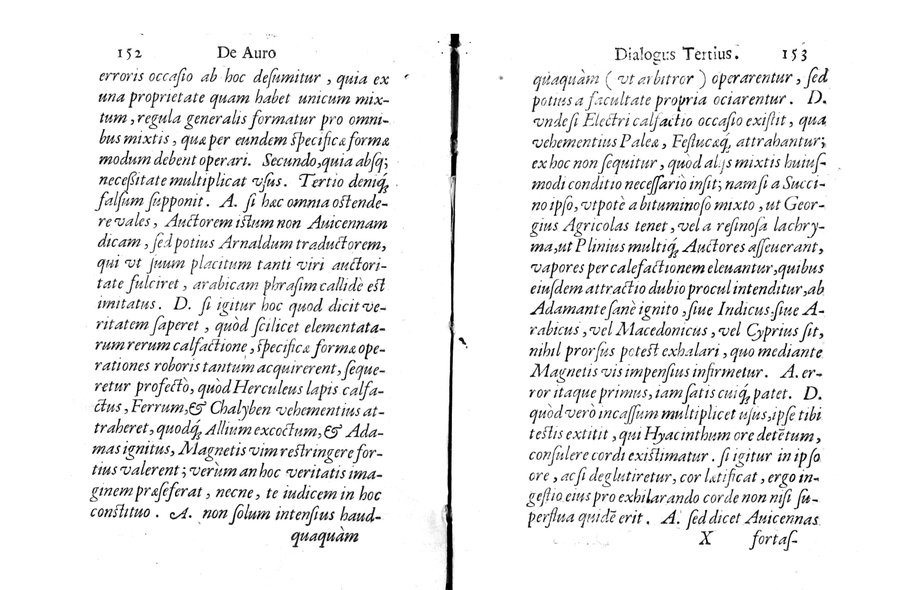 152 De Auro
erroris occasio ab hoc desumitur, quia ex
una proprietate quam habet unicum mix-
tum, regula generalis formatur pro omni-
bus mixtis, quæ per eundem specificæ formæ
modum debent operari. Secundo, quia absq;
necessitate multiplicat vsus. Tertio deniq;
falsum supponit. A. si hæc omnia ostende-
re vales, Auctorem istum non Auicennam
dicam, sed potius Arnaldum traductorem,
qui vt suum placitum tanti viri auctori-
tate fulciret, arabicam phrasim callidè est
imitatus. D. si igitur hoc quod dicit ve-
ritatem saperet, quòd scilicet elementata-
rum rerum calfactione, specificæ formæ ope-
rationes roboris tantum acquirerent, seque-
retur profectò, quòd Herculeus lapis calfa-
ctus, Ferrum, & Chalyben vehementius at-
traheret, quodq; Allium excoctum, & Ada-
mas ignitus, Magnetis vim restringere for-
tius valerent; verùm an hoc veritatis ima-
ginem præseferat, necne, te iudicem in hoc
constituo. A. non solum intensius haud-
quaquàm
Dialogus Tertius. 153
quàquàm (vt arbitror) operarentur, sed
potius a facultate propria ociarentur. D.
vnde si Electri calfactio occasio existit, qua
vehementius Paleæ, Festucæq; attrahantur;
ex hoc non sequitur, quòd alijs mixtis huius-
modi conditio necessariò insit; nam si a Succi-
no ipso, vtpotè a bituminoso mixto, ut Geor-
gius Agricolas tenet, vel a resinosa lachry-
ma, ut Plinius multiq; Auctores asseuerant,
vapores per calefactionem eleuantur, quibus
eiusdem attractio dubio procul intenditur, ab
Adamante sanè ignito, siue Indicus, siue A-
rabicus, vel Macedonicus, vel Cyprius sit,
nihil prorsus potest exhalari, quo mediante
Magnetis vis impensius infirmetur. A. er-
ror itaque primus, iam satis cuiq; patet. D.
quòd verò incassum multiplicet usus, ipse tibi
testis extitit, qui Hyacinthum ore detētum,
consulere cordi existimatur. si igitur in ipso
ore, ac si deglutiretur, cor lætificat, ergo in-
gestio eius pro exhilarando corde non nisi su-
perflua quidē erit. A. sed dicet Auicennas
X fortas-